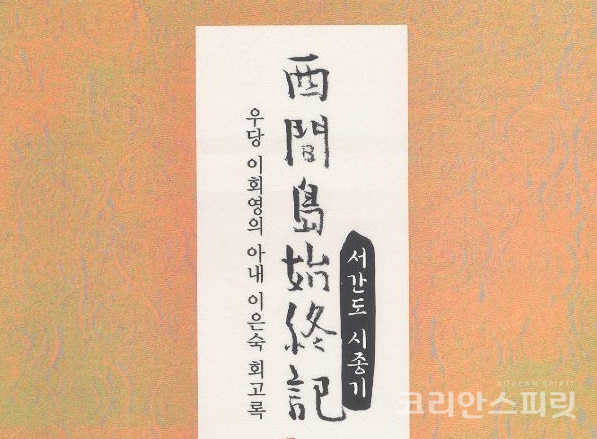 西間島始終記
서간도 시종기
우당 이회영의 아내 이은숙 회고록
KOREAN SPIRIT
코리안스피릿